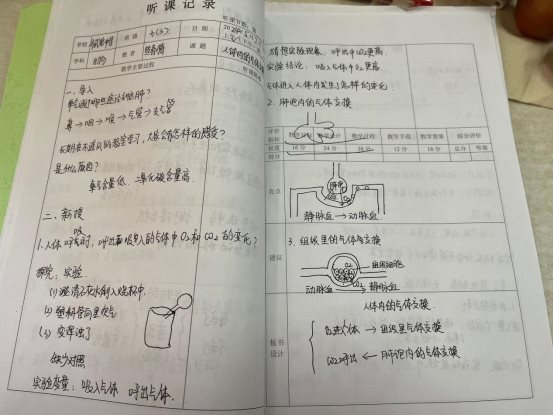 听课记录
学校
班级
七(三)
日期
学科
生物
教者
课题
人体内的气体交换
教学主要过程
一、导入
鼻→咽→喉→气管→支气管
长期在不通风的教室学习，大家会有怎样的感受？
是什么原因？
氧气含量低、二氧化碳含量高
二、新授
1、人体呼吸时，呼出和吸入的气体中O2和CO2的变化？
探究：实验
(1) 澄清石灰水倒入烧杯中
(2) 塑料管向里吹气
(3) 变浑浊了
缺少对照
实验变量：吸入气体 呼出气体
猜想实验现象：呼出中CO2更高
实验结论：吸入气体中O2更高
气体进入人体内发生了怎样的变化
2. 肺泡内的气体交换
评价指标
教学目标
教学设计
教学过程
教学手段
教学效果
综合评价
权重
16分
24分
30分
12分
18分
总分
等第
得分
亮点
肺泡
静脉血→动脉血
建议
3. 组织里的气体交换
O2
组织细胞
CO2
动脉血
静脉血
板书设计
人体内的气体交换
O2进入人体→组织里气体交换
CO2呼出←肺泡内的气体交换